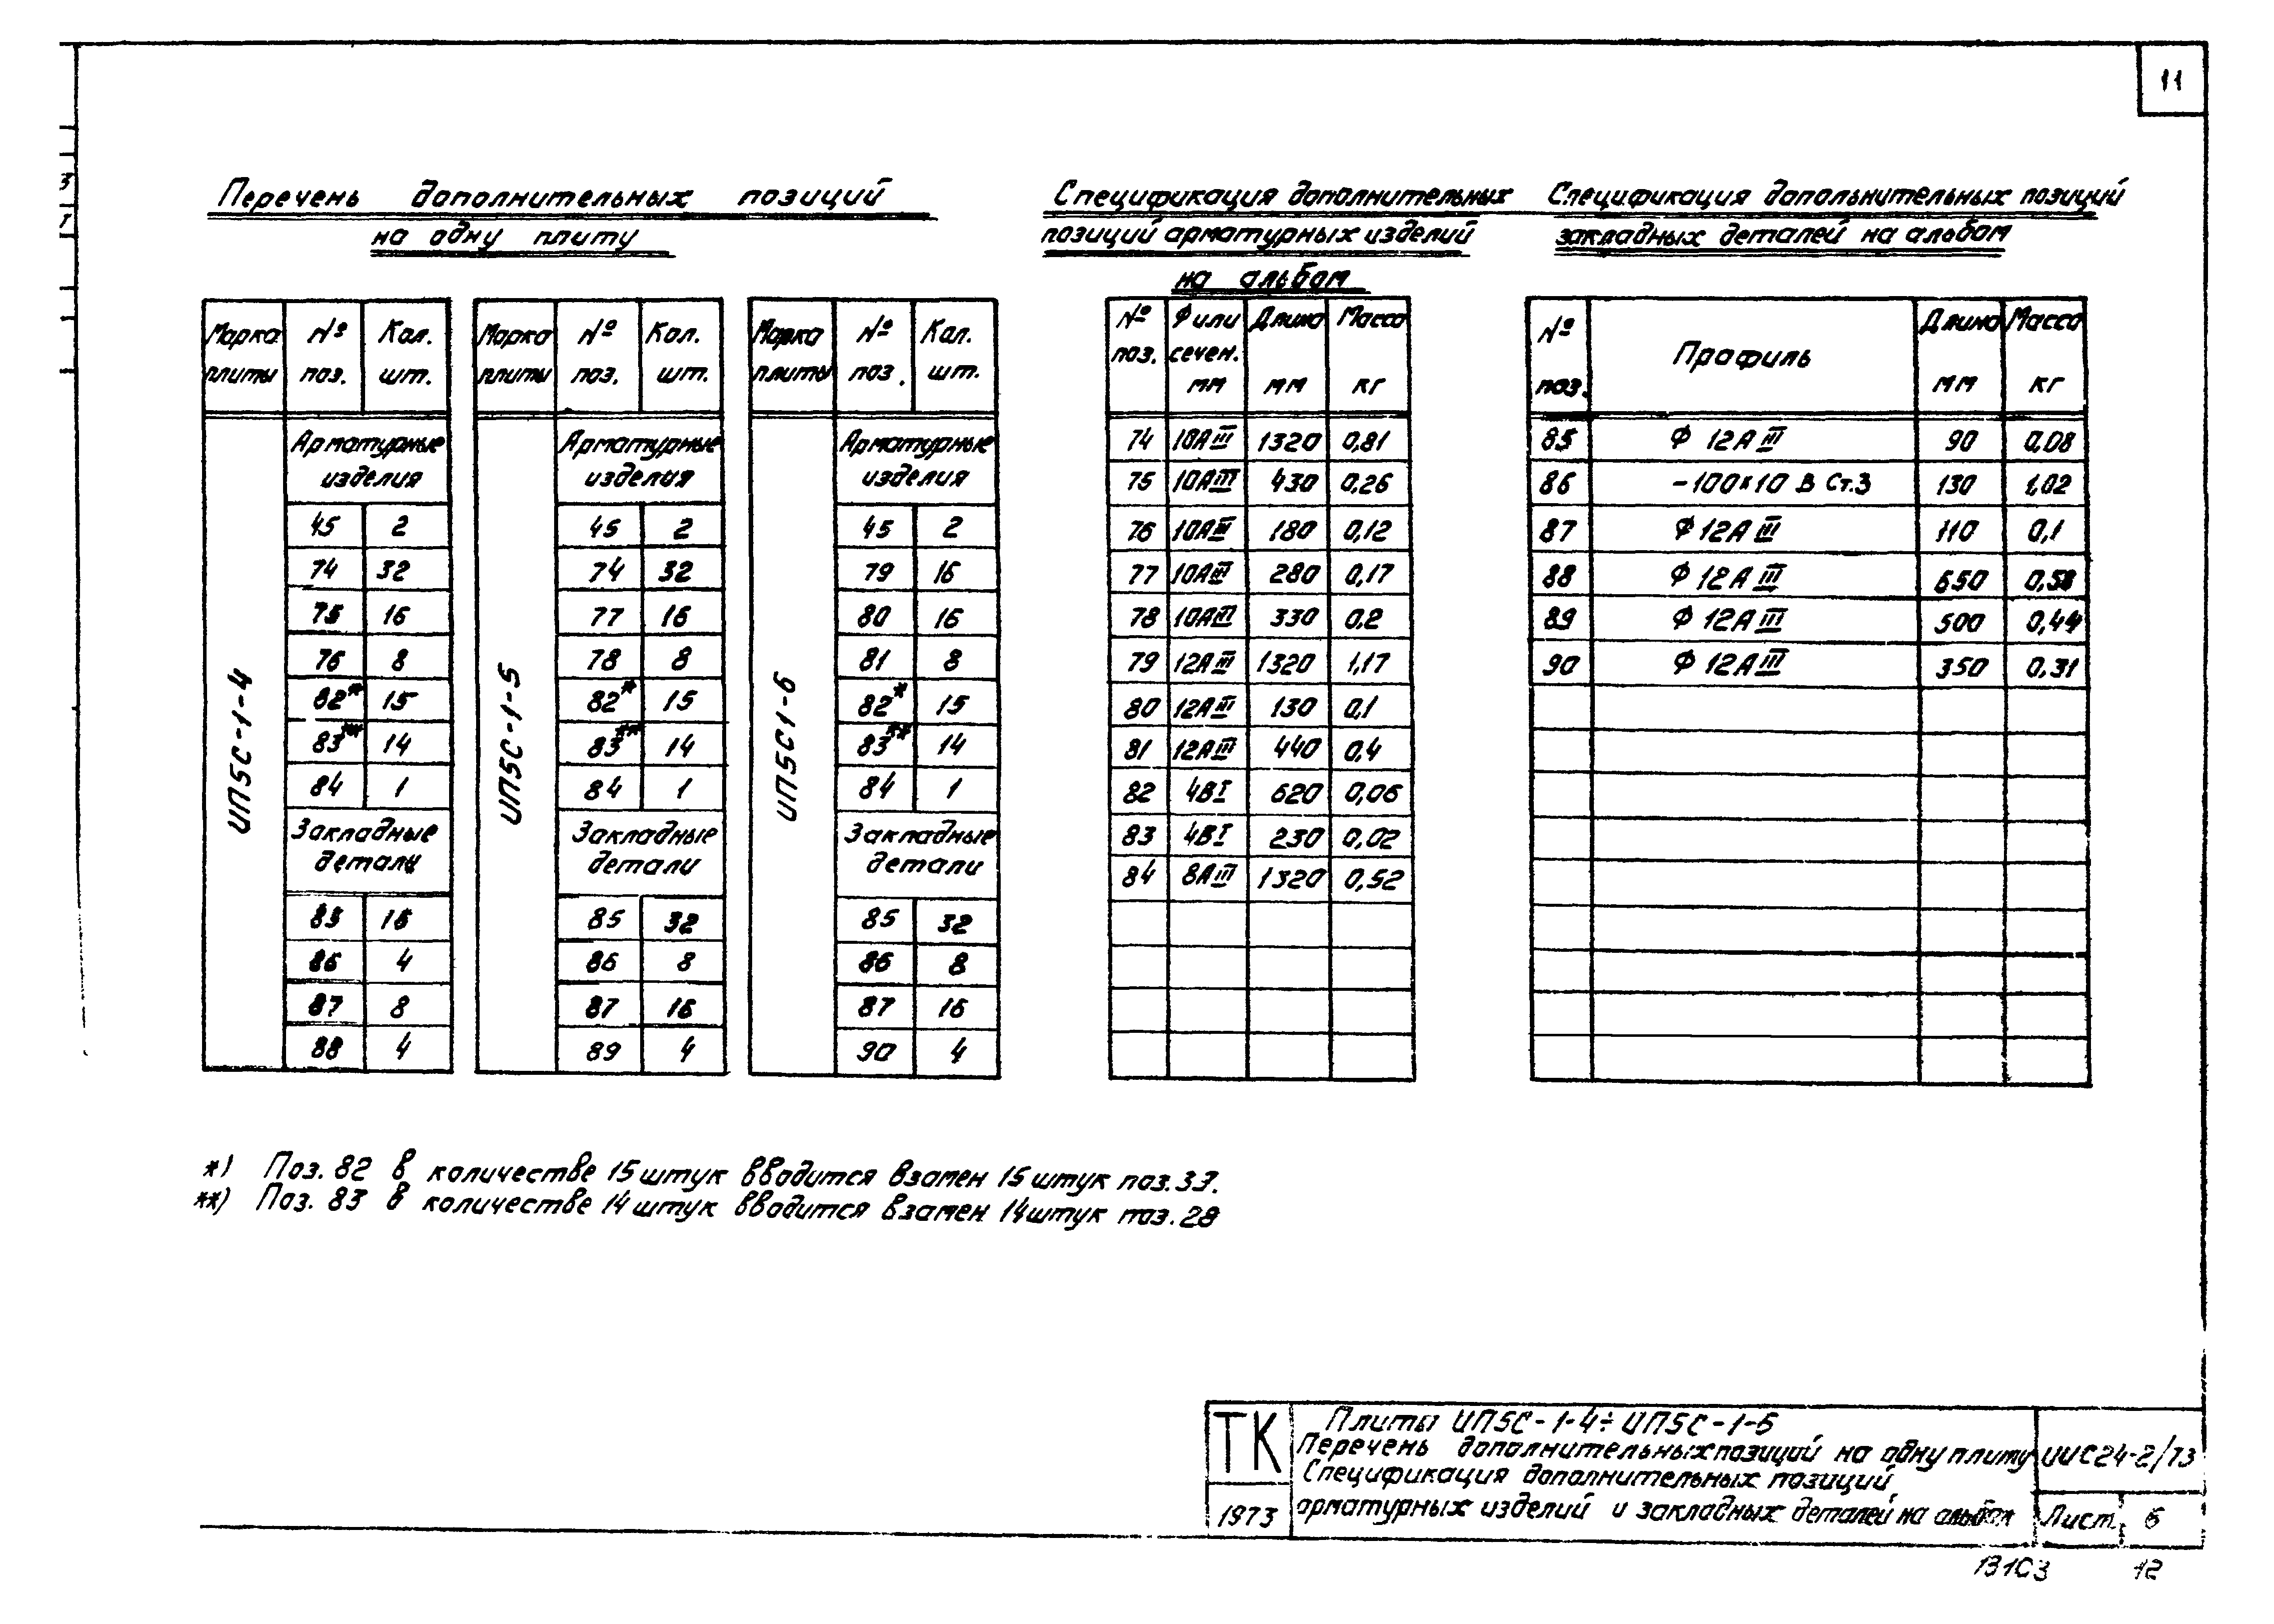 11
Перечень дополнительных позиций
на одну плиту
Марка плиты | № поз. | Кол. шт.
ИП5С-1-4
Арматурные изделия
45 | 2
74 | 32
75 | 16
76 | 8
82* | 15
83** | 14
84 | 1
Закладные детали
85 | 16
86 | 4
87 | 8
88 | 4
Марка плиты | № поз. | Кол. шт.
ИП5С-1-5
Арматурные изделия
45 | 2
74 | 32
77 | 16
78 | 8
82* | 15
83** | 14
84 | 1
Закладные детали
85 | 32
86 | 8
87 | 16
89 | 4
Марка плиты | № поз. | Кол. шт.
ИП5С1-6
Арматурные изделия
45 | 2
79 | 16
80 | 16
81 | 8
82* | 15
83** | 14
84 | 1
Закладные детали
85 | 32
86 | 8
87 | 16
90 | 4
Спецификация дополнительных
позиций арматурных изделий
на альбом
№ поз. | Ф или сечен. мм | Длина мм | Масса кг
74 | 10АIII | 1320 | 0,81
75 | 10АIII | 430 | 0,26
76 | 10АIII | 180 | 0,12
77 | 10АIII | 280 | 0,17
78 | 10АIII | 330 | 0,2
79 | 12АIII | 1320 | 1,17
80 | 12АIII | 130 | 0,1
81 | 12АIII | 440 | 0,4
82 | 4ВI | 620 | 0,06
83 | 4ВI | 230 | 0,02
84 | 8АIII | 1320 | 0,52
Спецификация допольнительных позиций
закладных деталей на альбом
№ поз. | Профиль | Длина мм | Масса кг
85 | Ф 12АIII | 90 | 0,08
86 | -100х10 В Ст.3 | 130 | 1,02
87 | Ф 12АIII | 110 | 0,1
88 | Ф 12АIII | 650 | 0,58
89 | Ф 12АIII | 500 | 0,44
90 | Ф 12АIII | 350 | 0,31
*) Поз. 82 в количестве 15 штук вводится взамен 15 штук поз. 37.
**) Поз. 83 в количестве 14 штук вводится взамен 14 штук поз. 28
ТК
1973
Плиты ИП5С-1-4÷ИП5С-1-6
Перечень дополнительных позиций на одну плиту
Спецификация дополнительных позиций
арматурных изделий и закладных деталей на альбом
ИИС24-2/73
Лист 6
13103 12